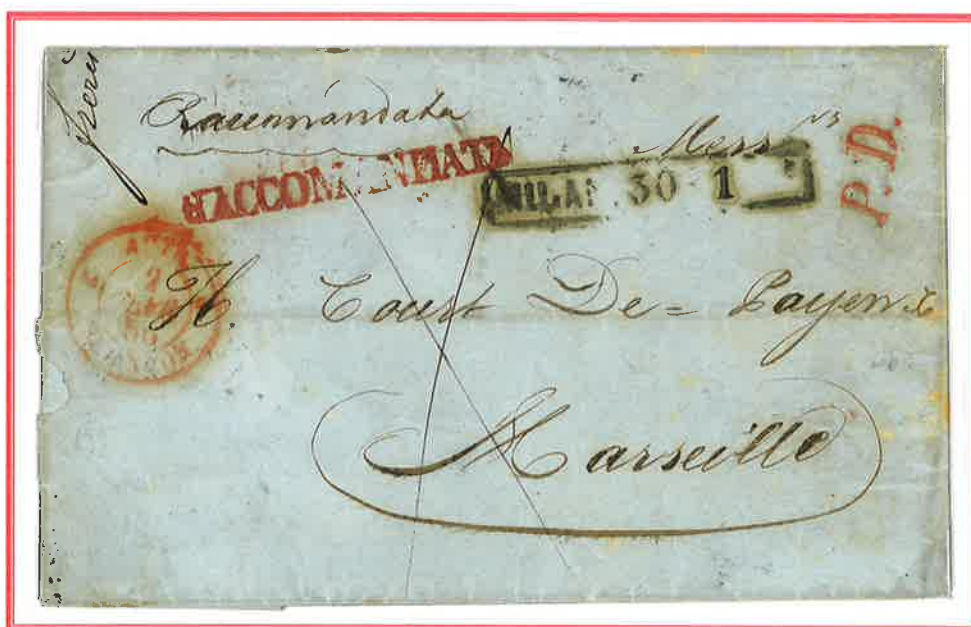 Raccomandata
Mess
RACCOMANDATA
MILAN 30 1
P.D.
H. Court De= Payen &
Marseille